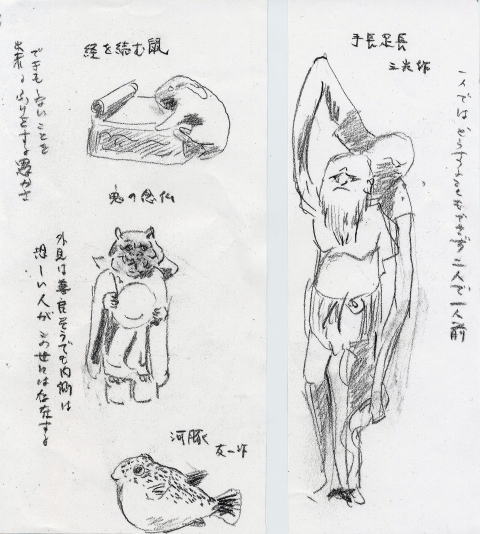 手長足長
三光作
一人ではどうすることもできず二人で一人前
経を結む鼠
できもしないことを
出来るふりをする愚かさ
鬼の念仏
外見は善良そうでも内側は
恐しい人がこの世には存在する
河豚
友一作